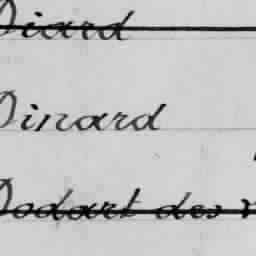 Diard
Dinard
Dodart des